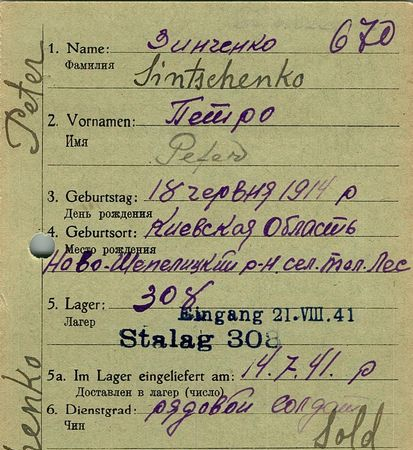 1. Name: Зинченко 670
Фамилия Sintschenko
2. Vornamen: Петро
Имя Peter
3. Geburtstag: 18 червня 1914 р
День рождения
4. Geburtsort: Киевская Область
Место рождения
Ново-Шепелицкий р-н сел. Тол. Лес
5. Lager: 308
Лагер
Eingang 21.VIII.41
Stalag 308
5a. Im Lager eingeliefert am: 14.7.41. р
Доставлен в лагер (число)
6. Dienstgrad: рядовой солдат
Чин Sold
Peter
henko